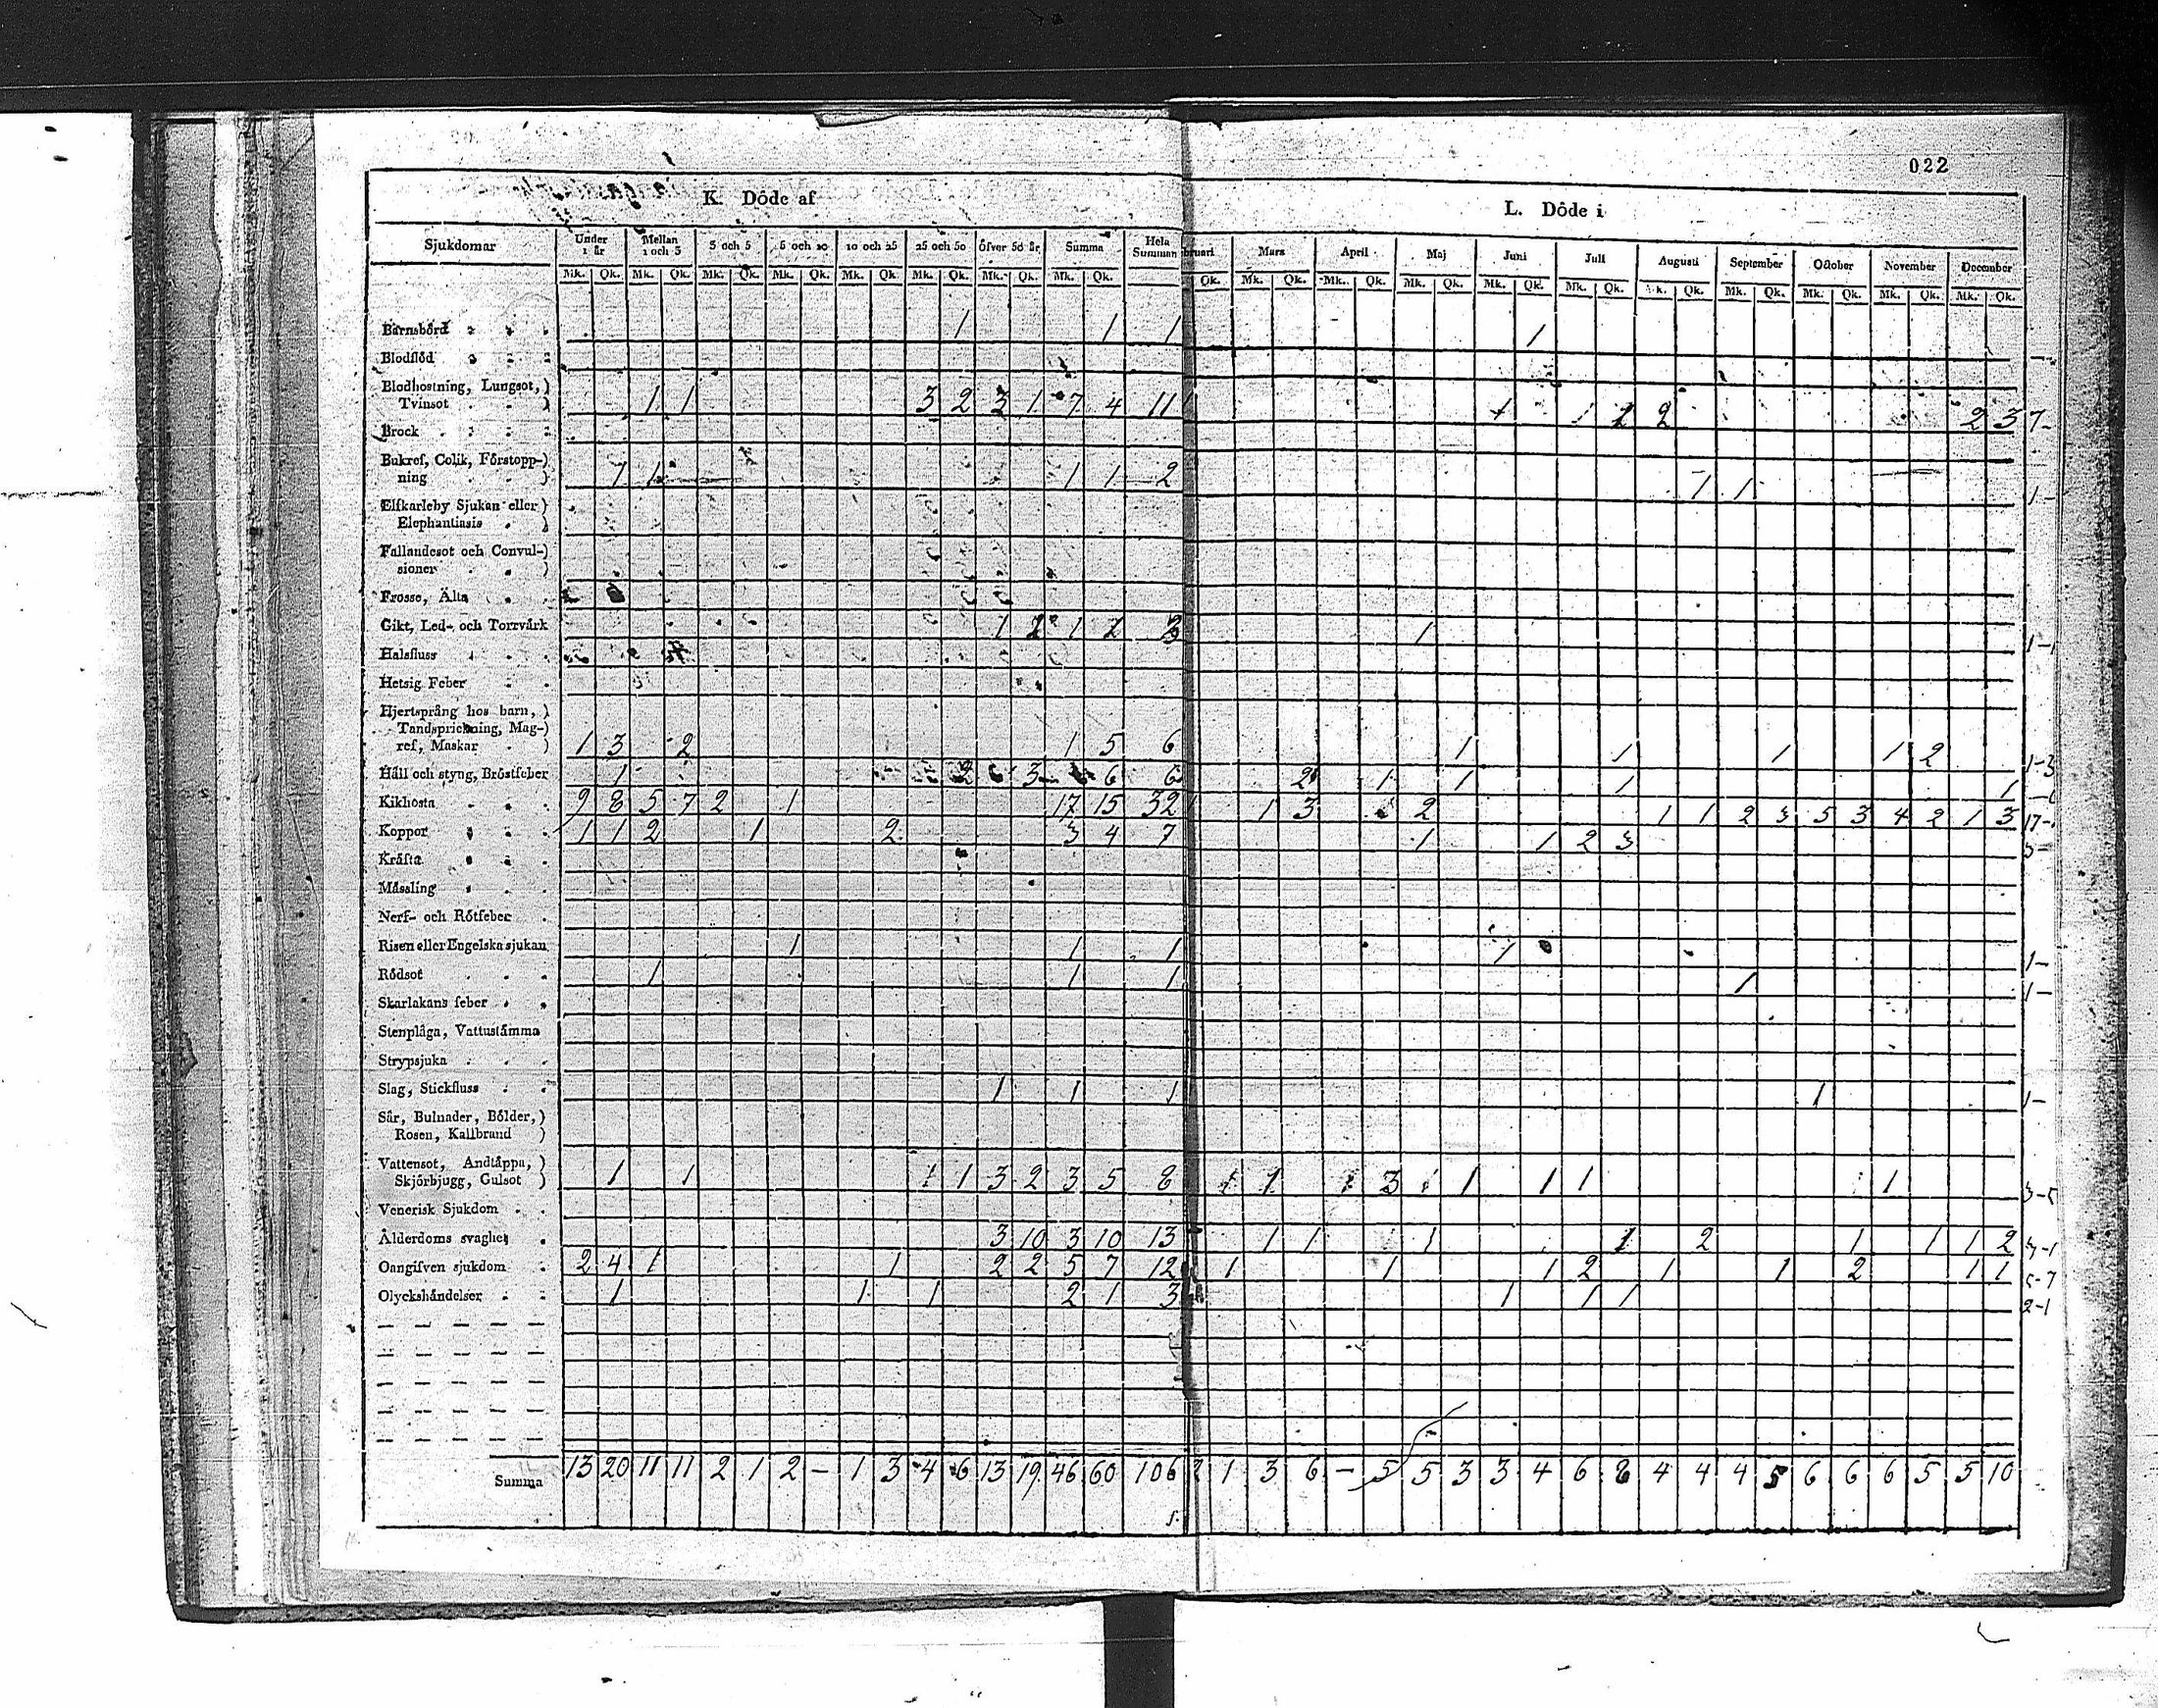 022
K. Döde af
L. Döde i
Sjukdomar Under 1 år Mellan 1 och 3 3 och 5 5 och 10 10 och 25 25 och 50 öfver 50 år Summa Hela Summan bruari Mars April Maj Juni Juli Augusti September October November December
Mk. Qk. Mk. Qk. Mk. Qk. Mk. Qk. Mk. Qk. Mk. Qk. Mk. Qk. Mk. Qk. Qk. Mk. Qk. Mk. Qk. Mk. Qk. Mk. Qk. Mk. Qk. Mk. Qk. Mk. Qk. Mk. Qk. Mk. Qk. Mk. Qk.
Barnsbörd 1 1 1 1
Blodflöd
Blodhostning, Lungsot,
Tvinsot 1 1 3 2 3 1 7 4 11 1 1 2 2 2 3 7-
Brock
Bukref, Colik, Förstopp-
ning 1 1 1 1 2 1 1 1-
Elfkarleby Sjukan eller
Elephantiasis
Fallandesot och Convul-
sioner
Frosse, Älta
Gikt, Led- och Torrvärk 1 2 1 2 3 1 1-
Halsfluss
Hetsig Feber
Hjertsprång hos barn,
Tandsprickning, Mag-
ref, Maskar 1 3 2 1 5 6 1 1 1 1 2 1-3
Håll och styng, Bröstfeber 1 2 3 6 6 2 1 1 1 1
Kikhosta 9 8 5 7 2 1 17 15 32 1 3 2 1 1 2 3 5 3 4 2 1 3 17-
Koppor 1 1 2 1 2 3 4 7 1 1 2 3 3-
Kräfta
Mässling
Nerf- och Rötfeber
Risen eller Engelska sjukan 1 1 1 1 1-
Rödsot 1 1 1 1 1-
Skarlakans feber
Stenplåga, Vattustämma
Strypsjuka
Slag, Stickfluss 1 1 1 1 1-
Sår, Bulnader, Bölder,
Rosen, Kallbrand
Vattensot, Andtäppa,
Skjörbjugg, Gulsot 1 1 1 3 2 3 5 8 1 1 3 1 1 1 1 3-5
Venerisk Sjukdom
Ålderdoms svaghet 3 10 3 10 13 1 1 1 1 2 1 1 1 2 3-1
Oangifven sjukdom 2 4 1 1 2 2 5 7 12 1 1 1 2 1 1 2 1 1 5-7
Olyckshändelser 1 1 1 2 1 3 1 1 1 2-1
Summa 13 20 11 11 2 1 2 — 1 3 4 6 13 19 46 60 106 2 1 3 6 — 5 5 3 3 4 6 8 4 4 4 5 6 6 6 5 5 10